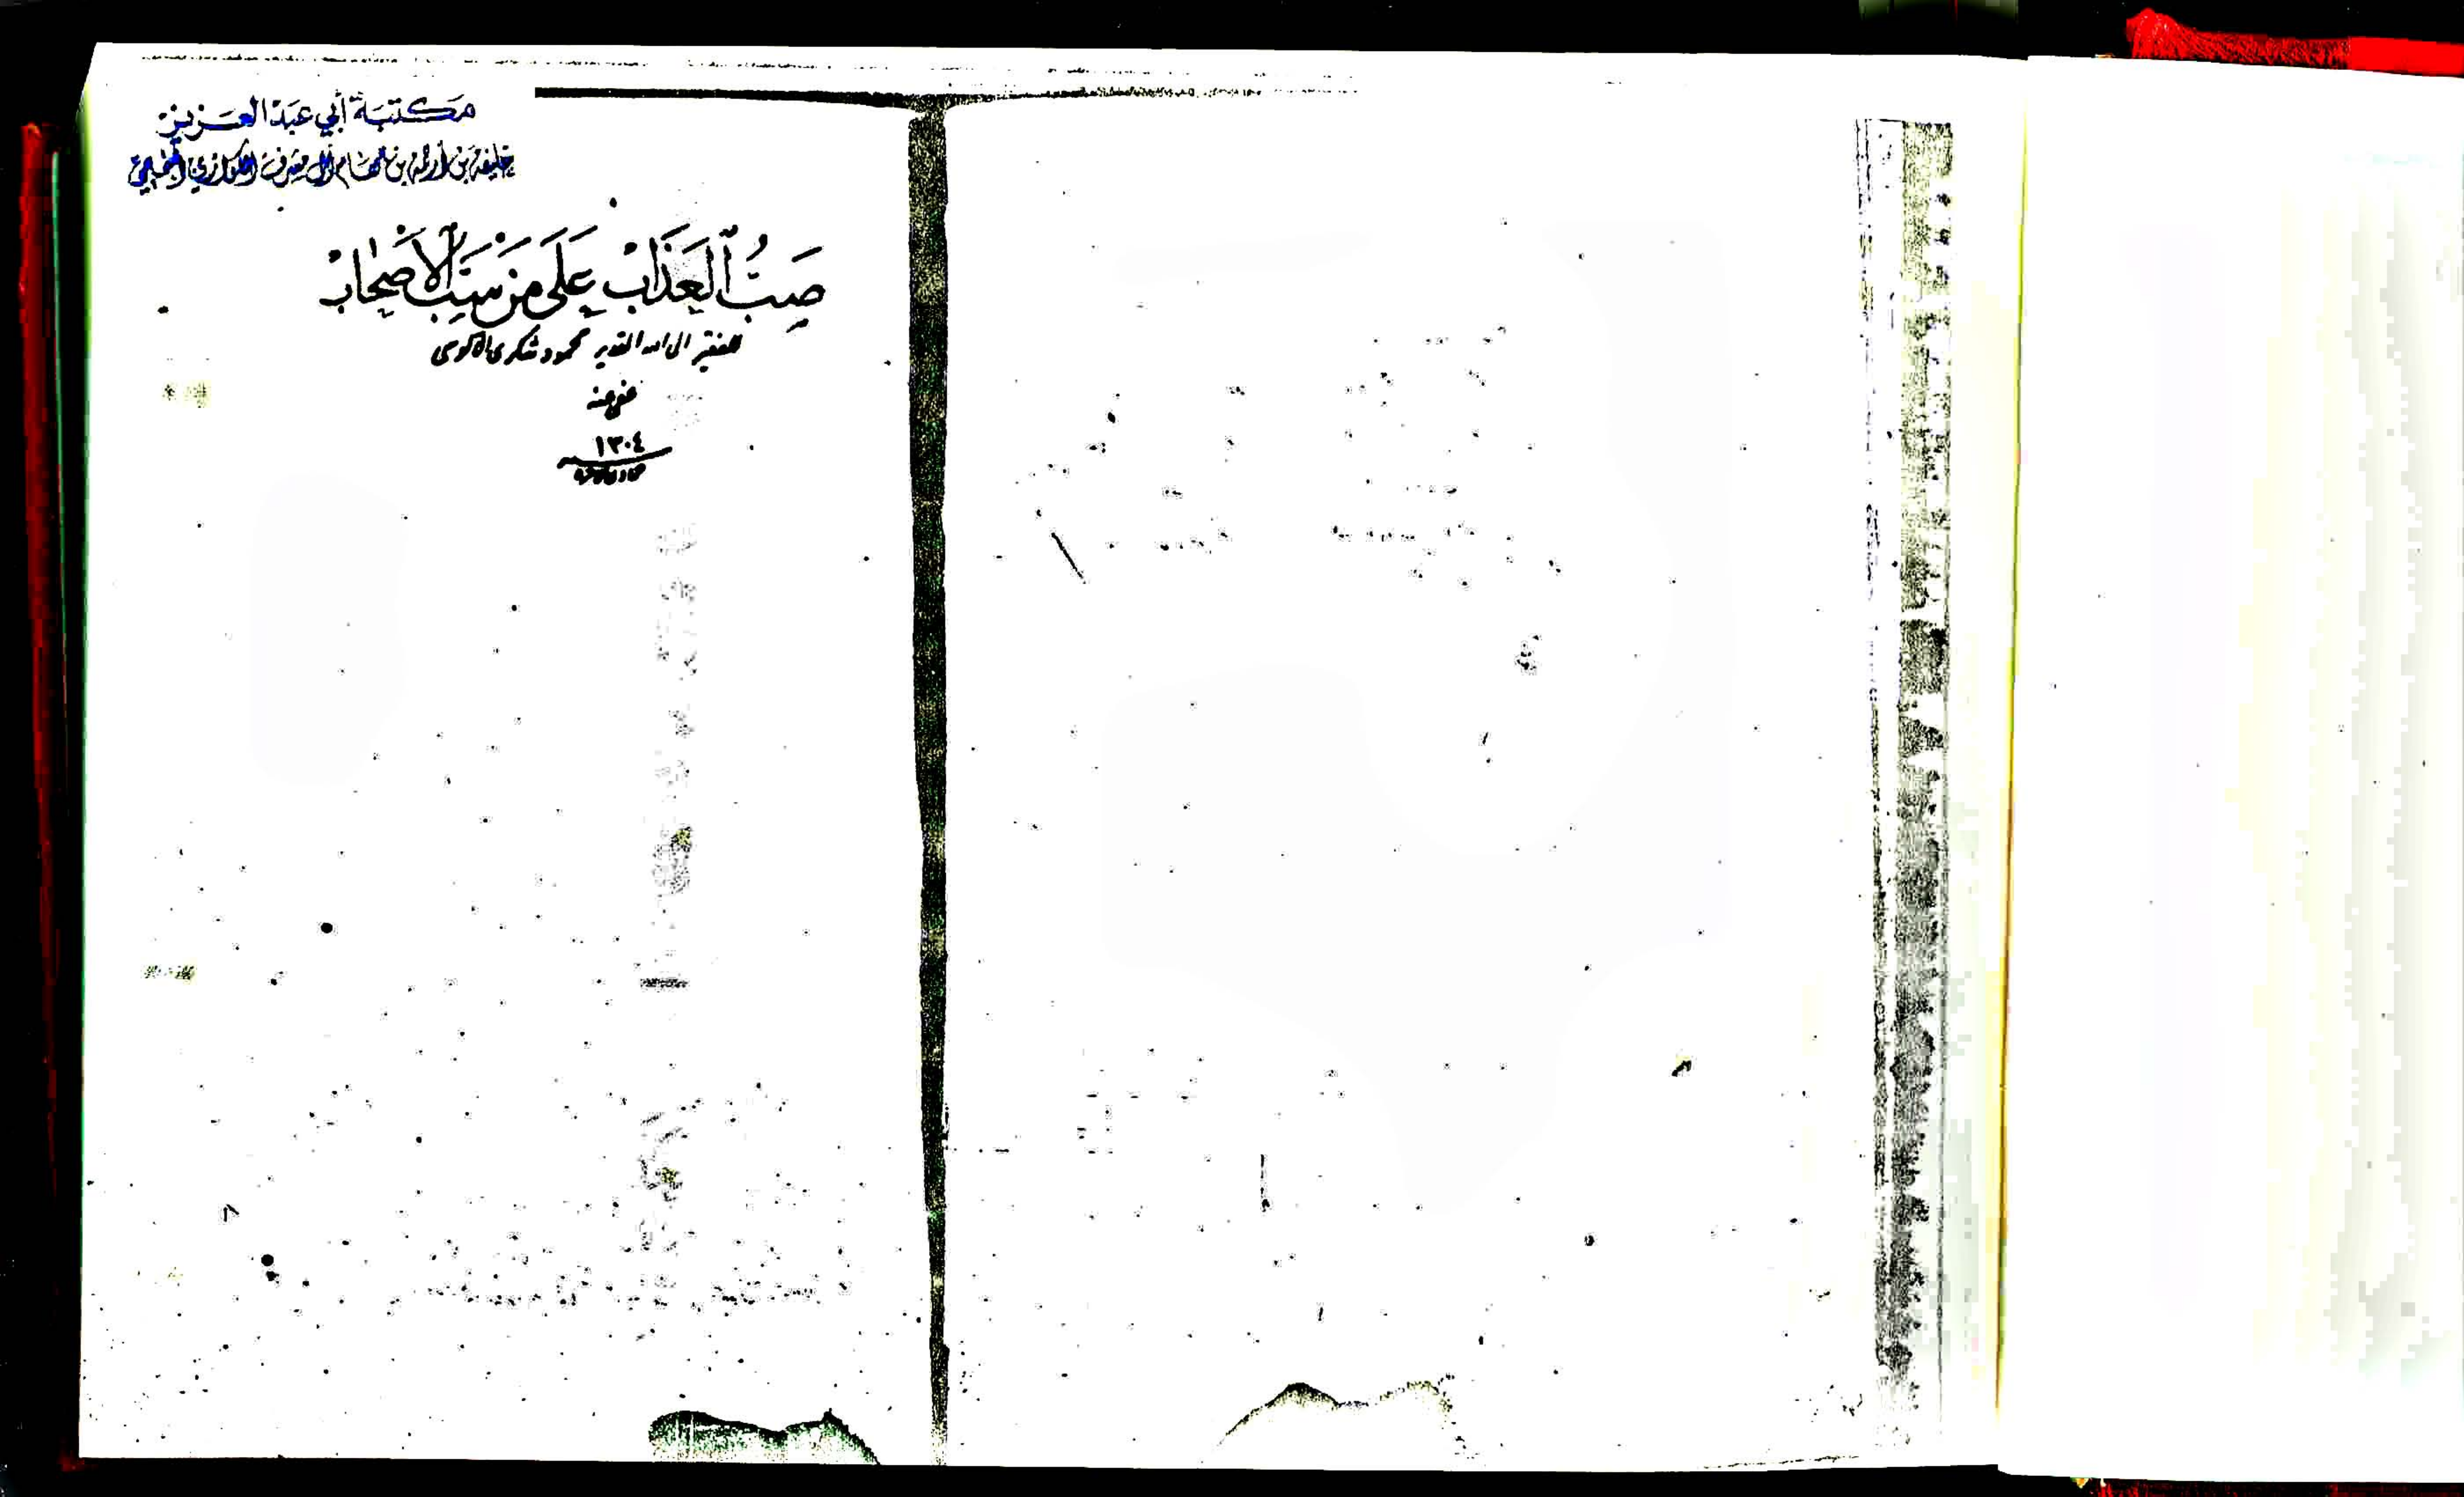 مَكتبَة أبي عبَد العَزيز
خليفة بن أرحمة بن جهام آل جهام الكواري
صَبُّ العَذَابْ عَلَى مَنْ سَبَّ الأَصْحَابْ
للفقير الى الله القدير محمود شكري الالوسي
عفي عنه
١٣٠٤